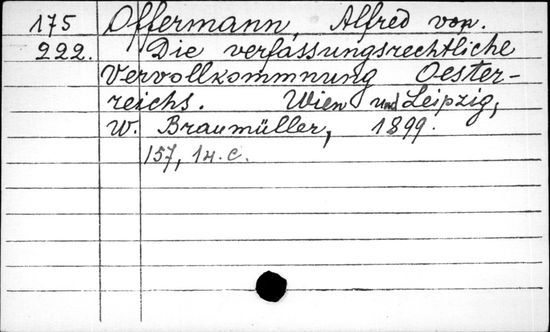 175 Offermann, Alfred von.
222. Die verfassungsrechtliche
Vervollkommnung Oester-
reichs. Wien und Leipzig,
W. Braumüller, 1899.
157, 1н. с.